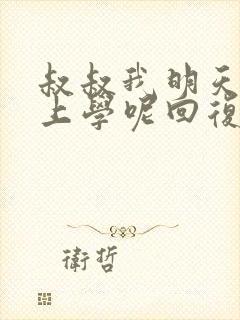 叔叔我明天
上學呢回復
衛哲